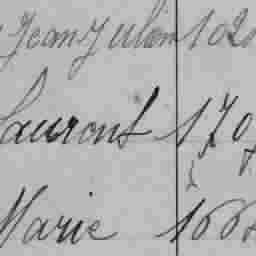 Jean Julien 102
Laurent 170
Marie 166